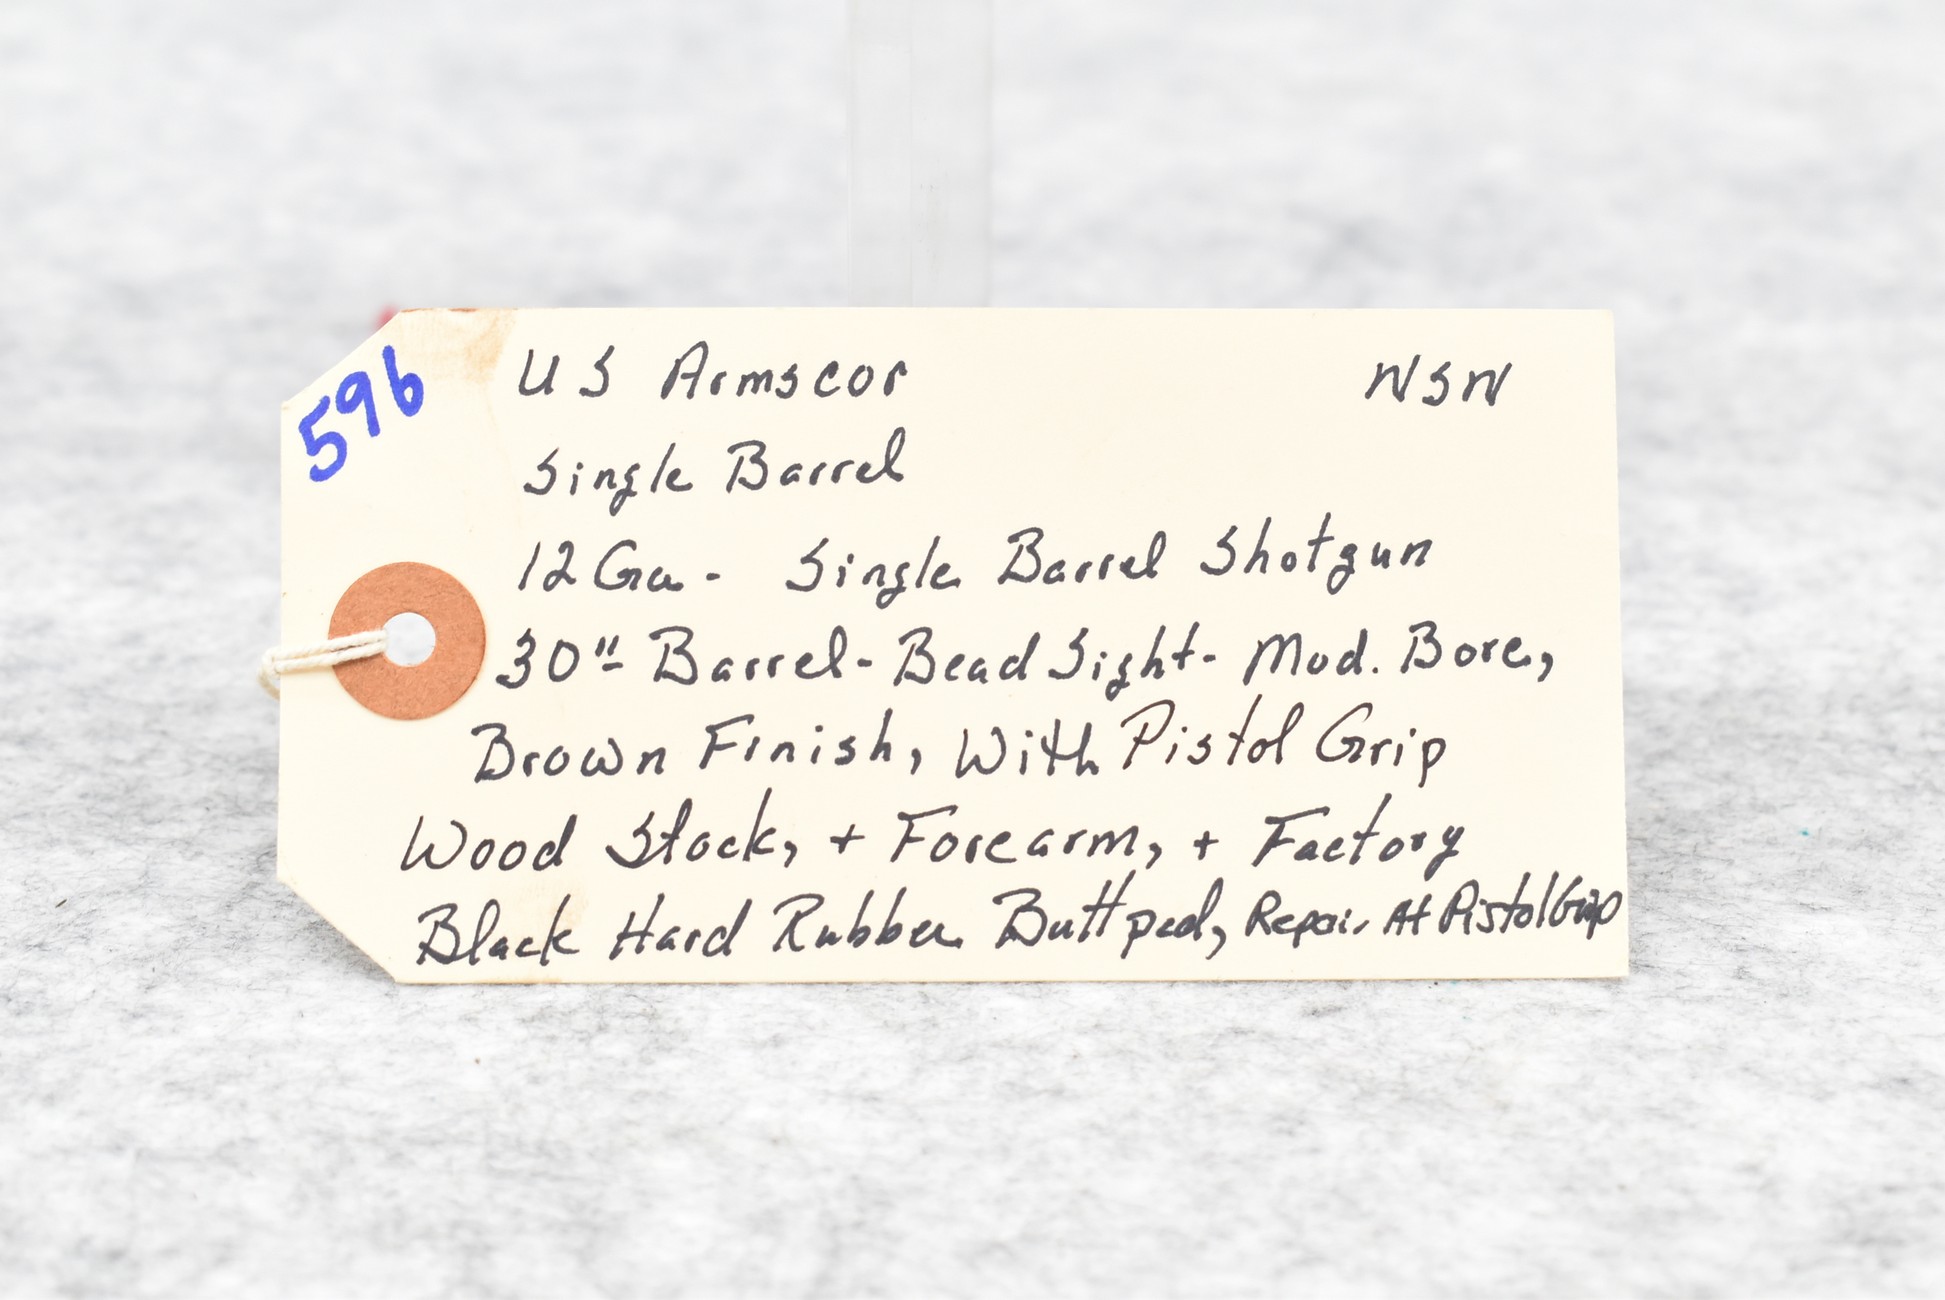 596
US Armscor NSN
Single Barrel
12 Ga - Single Barrel Shotgun
30" Barrel - Bead Sight - Mod. Bore,
Brown Finish, With Pistol Grip
Wood Stock, + Forearm, + Factory
Black Hard Rubber Buttpad, Repair At Pistol Grip